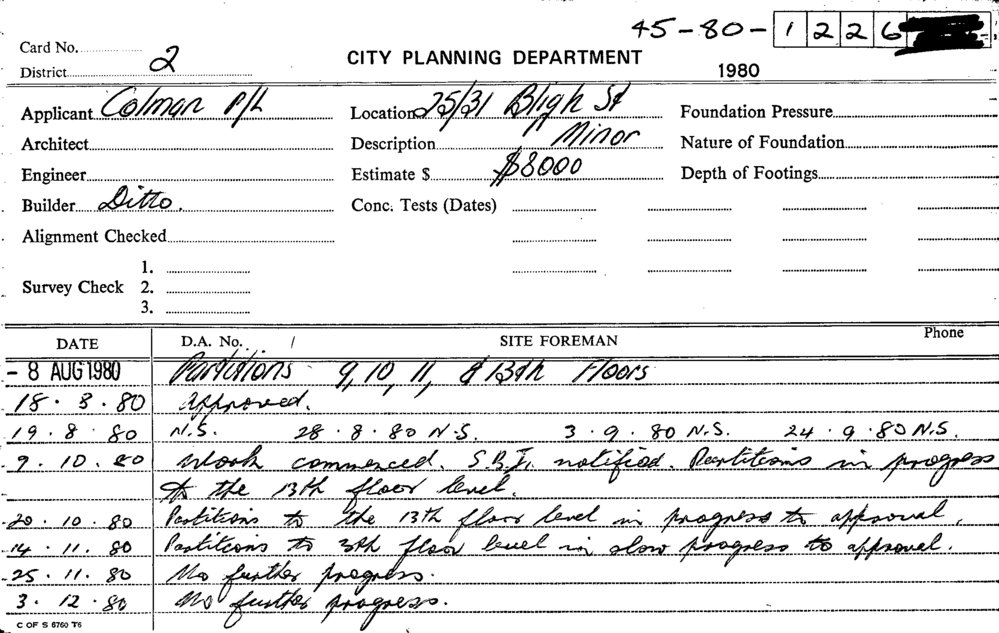 45-80-1226
Card No. CITY PLANNING DEPARTMENT
District 2 1980
Applicant Colman P/L Location 25/31 Bligh St Foundation Pressure
Architect Description Minor Nature of Foundation
Engineer Estimate $ $8000 Depth of Footings
Builder Ditto. Conc. Tests (Dates)
Alignment Checked
1.
Survey Check 2.
3.
DATE D.A. No. / SITE FOREMAN Phone
- 8 AUG 1980 Partitions 9, 10, 11, & 13th Floors
18. 3. 80 Approved.
19. 8. 80 N.S. 28. 8. 80 N.S. 3. 9. 80 N.S. 24. 9. 80 N.S.
9. 10. 80 Work commenced. S.B.I. notified. Partitions in progress
to the 13th floor level.
20. 10. 80 Partitions to the 13th floor level in progress to approval.
14. 11. 80 Partitions to 13th floor level in slow progress to approval.
25. 11. 80 No further progress.
3. 12. 80 No further progress.
C OF S 6760 T6